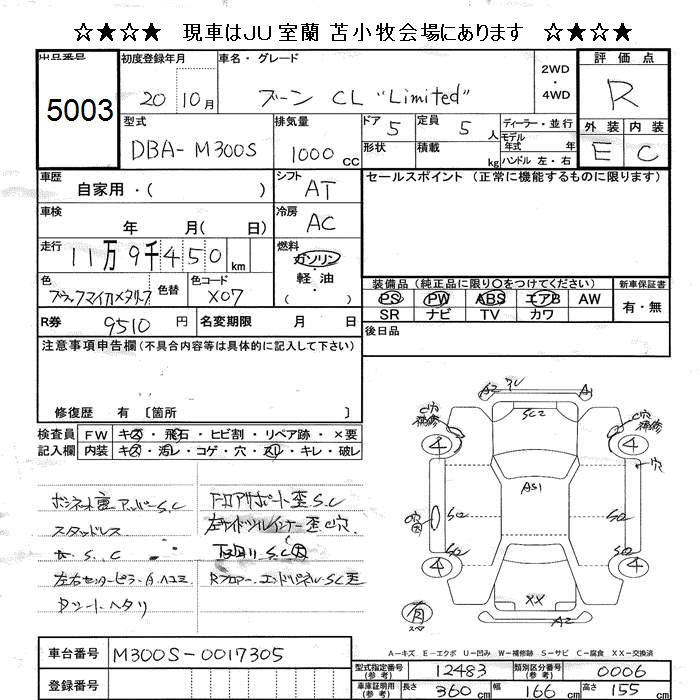 ☆★☆★ 現車はJU室蘭 苫小牧会場にあります ☆★☆★
出品番号
5003
初度登録年月
20 10月
車名・グレード
ブーン CL "Limited"
2WD
・
4WD
評価点
R
外装 内装
E C
型式
DBA-M300S
排気量
1000cc
ドア 5
形状
定員 5人
積載 kg
ディーラー・並行
モデル年式 年
ハンドル 左・右
車歴
自家用・( )
シフト
AT
セールスポイント (正常に機能するものに限ります)
車検
年 月( 日)
冷房
AC
走行
11万9千450km
燃料
ガソリン
・
軽油
( )
色
ブラックマイカメタリック
色替
色コード
X07
装備品 (純正品に限り○をつけてください)
PS PW ABS エアB AW
SR ナビ TV カワ
新車保証書
有・無
R券 9510円
名変期限 月 日
後日品
注意事項申告欄(不具合内容等は具体的に記入して下さい)
修復歴 有 〔箇所
検査員記入欄
FW キズ・飛石・ヒビ割・リペア跡・×要
内装 キズ・汚レ・コゲ・穴・スレ・キレ・破レ
ボンネット歪 アッパーS.C
スタッドレス
S.C
左右センターピラーAヘコミ
シートヘタリ
Fコアサポート歪S.C
左サイドシルインナー歪C穴
下廻りS.C大
Rフロアー、エンドパネルS.C歪
A2
A1
C穴
補修
C穴
補修
SC2
4
4
穴
AS1
S2
S2
4
4
XX
有
スペア
A2
A-キズ E-エクボ U-凹み W-補修跡 S-サビ C-腐食 XX-交換済
車台番号 M300S-0017305
登録番号
型式指定番号(参考) 12483
類別区分番号(参考) 0006
車庫証明用(参考) 長さ 360cm 幅 166cm 高さ 155cm